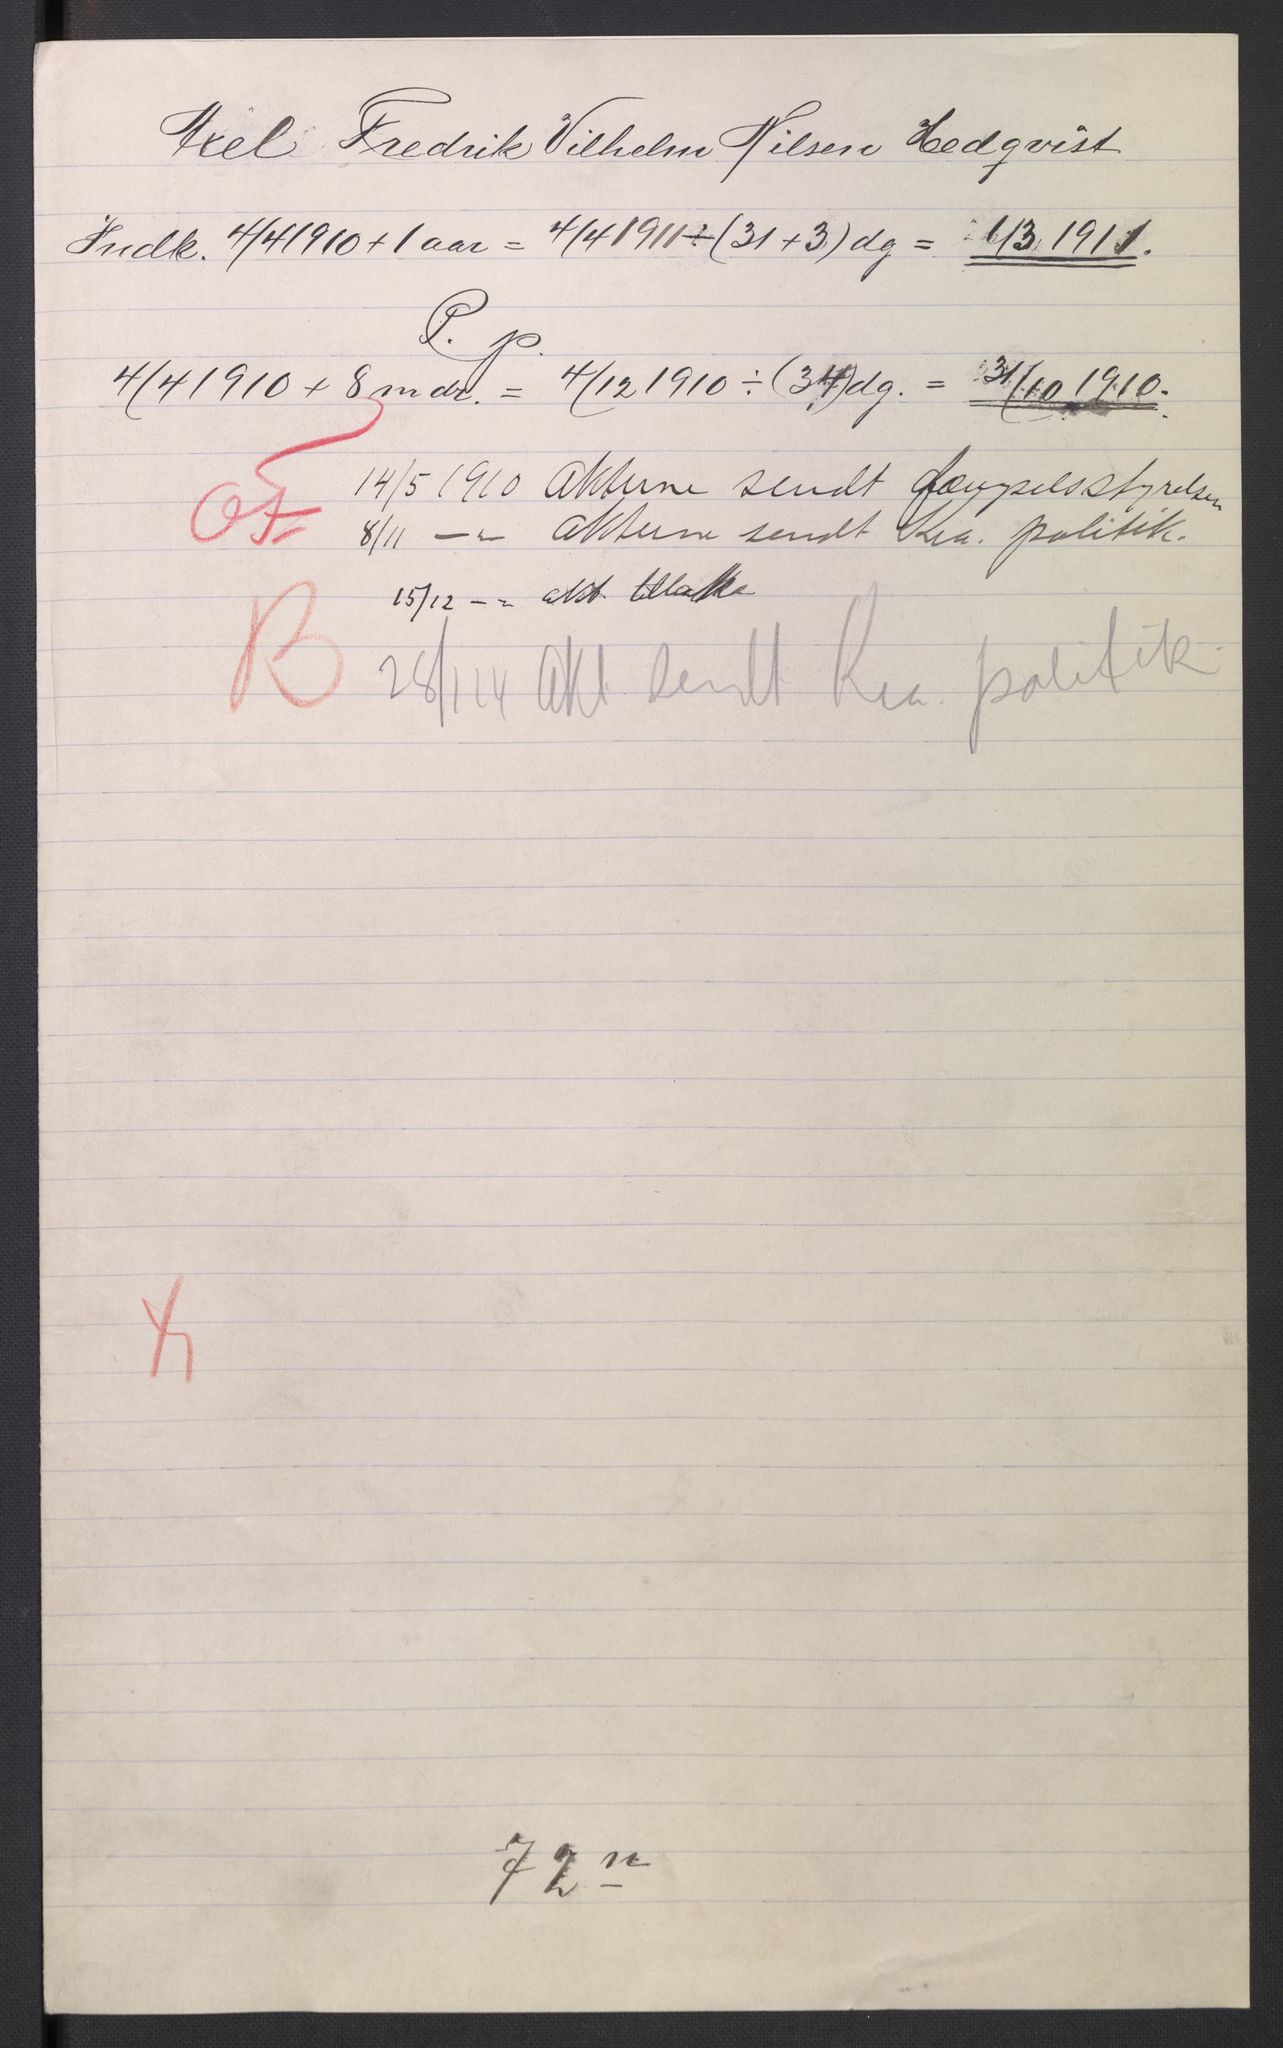 Axel Fredrik Vilhelm Nilsen Hedqvist
Indk. 4/4 1910 + 1 aar = 4/4 1911 ÷ (31 + 3) dg = 1/3 1911.
P. p.
4/4 1910 + 8 mdr. = 4/12 1910 ÷ (34) dg. = 31/10 1910.
14/5 1910 Akterne sendt fængselsstyrelsen
8/11 -"- Akterne sendt Kra. politik.
15/12 -"- akt. tilbake
B 28/1 14 Akt sendt Kra. politik
72 n